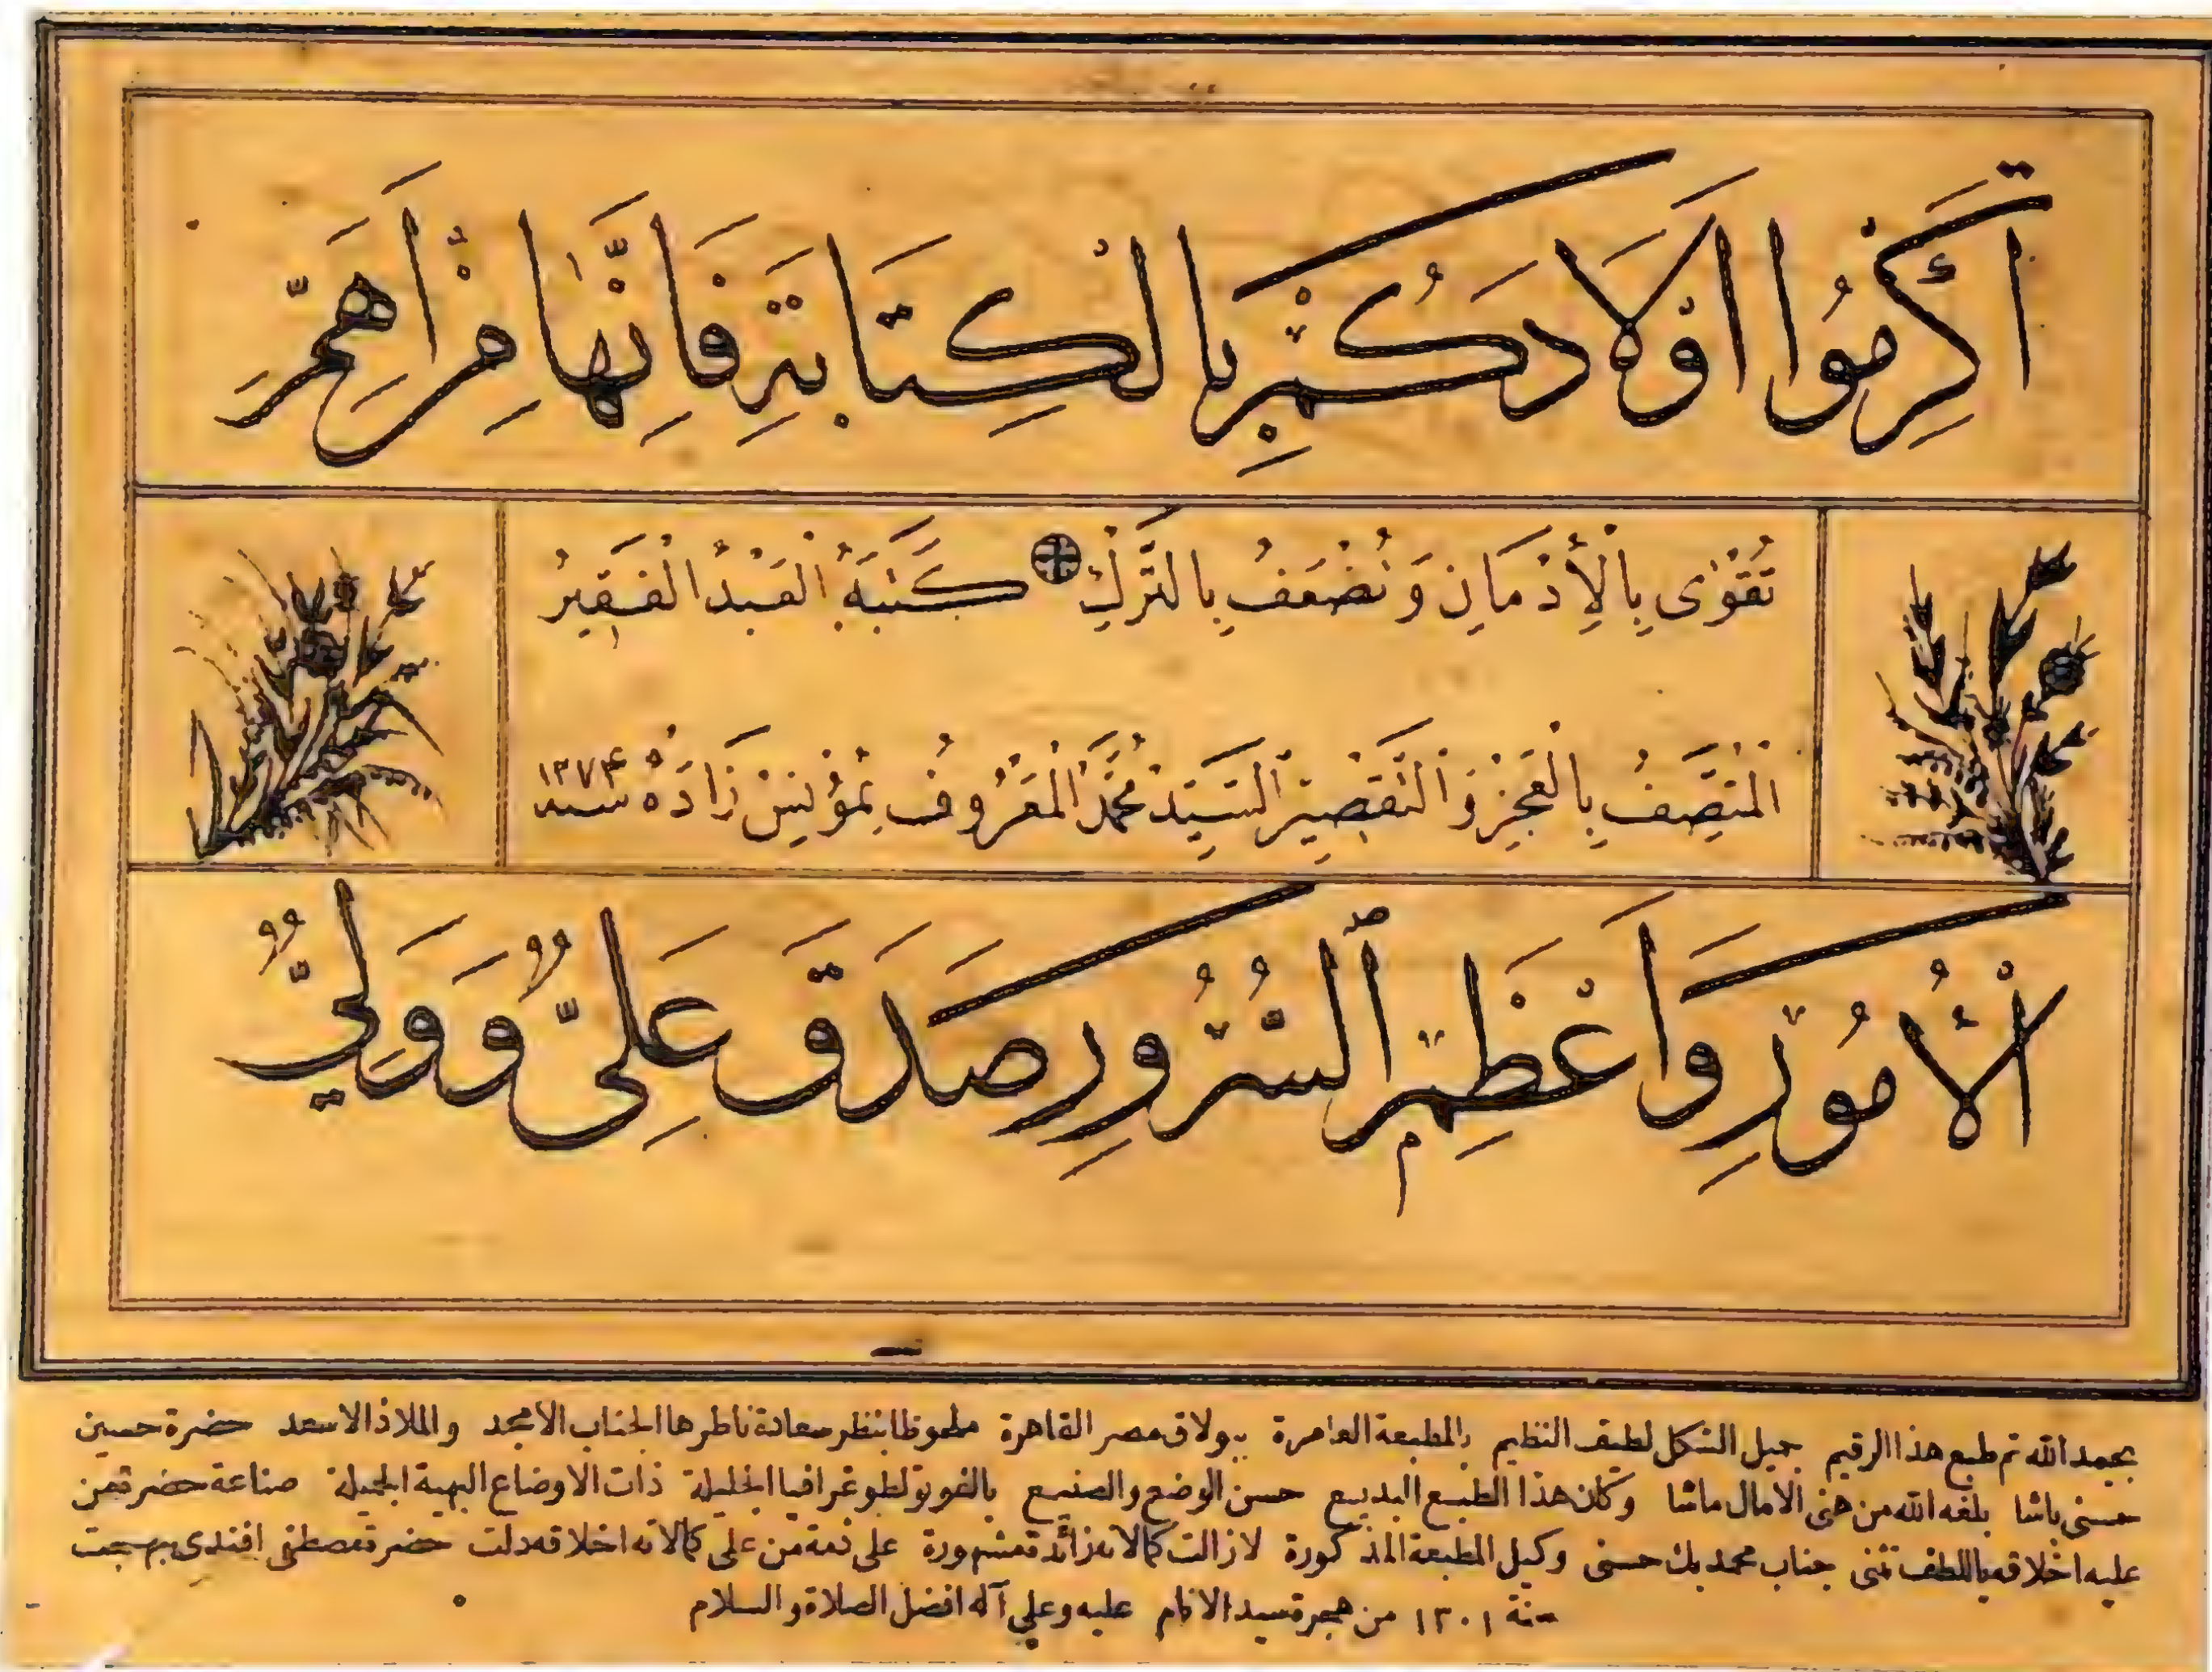 أَكْرِمُوا أَوْلَادَكُمْ بِالْكِتَابَةِ فَإِنَّهَا مِنْ أَهَمِّ
تُقَوّٰى بِالْأِدْمَانِ وَتُضْعَفُ بِالتَّرْكِ كَتَبَهُ الْعَبْدُ الْفَقِيرُ
الْمُتَّصِفُ بِالْعَجْزِ وَالتَّقْصِيرِ السَّيِّدْ مُحَمَّدْ الْمَعْرُوفُ بِمُؤْنِسْ زَادَهْ سنه
الْأُمُورِ وَأَعْظَمِ السُّرُورِ صَدَقَ عَلِيٌّ وَوَلِيٌّ
بحمد الله تم طبع هذا الرقيم جميل الشكل لطيف التنظيم بالمطبعة العامرة ببولاق مصر القاهرة ملحوظا بنظر سعادة ناظرها الجناب الامجد والملاذ الاسعد حضرة حسين
حسنى باشا بلغه الله من هنى الامال ماشا وكان هذا الطبع البديع حسن الوضع والصنيع بالفوتولطوغرافيا الجليلة ذات الاوضاع البهية الجميلة صناعة حضرة من
عليه اخلاقه باللطف تثنى جناب محمد بك حسنى وكيل المطبعة المذكورة لا زالت كمالاته زائدة مشهورة على ذمة من على كمالاته اخلاقه دلت حضرة مصطفى افندى بهجت
سنة ١٣٠١ من هجرة سيد الانام عليه وعلى آله افضل الصلاة والسلام